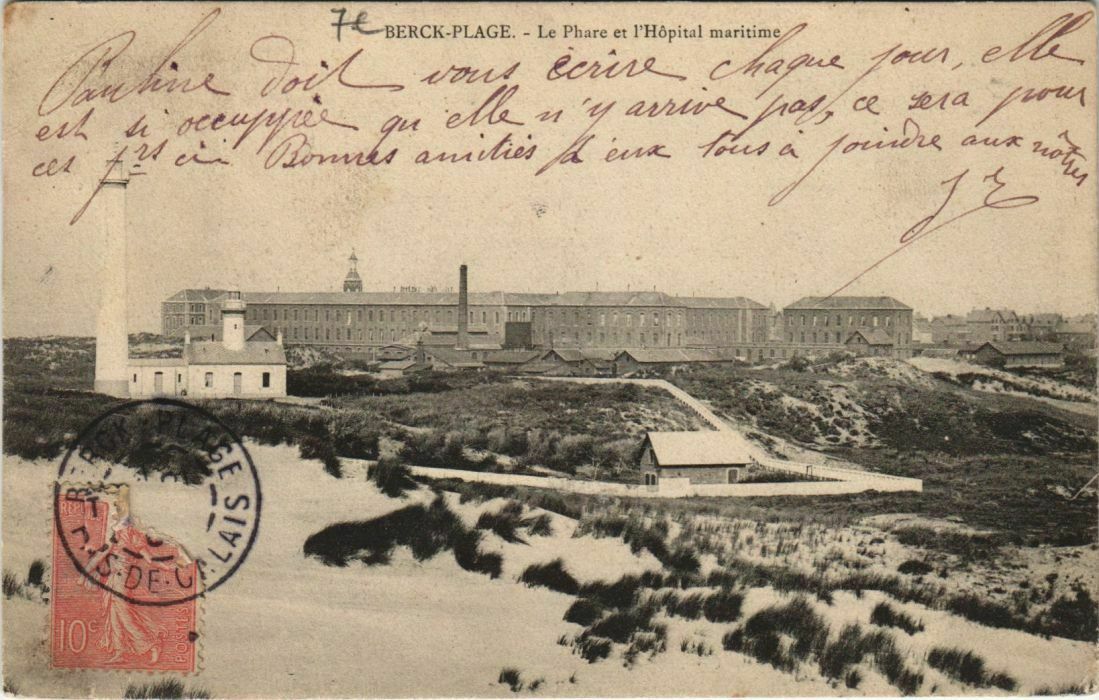 7e
BERCK-PLAGE. - Le Phare et l'Hôpital maritime
Pauline doit vous écrire chaque jour, elle
est si occuppée qu'elle n'y arrive pas, ce sera pour
ces jrs ci Bonnes amitiés à eux tous à joindre aux nôtres
BERCK-PLAGE
PAS-DE-CALAIS
RÉPUB
10c POSTES